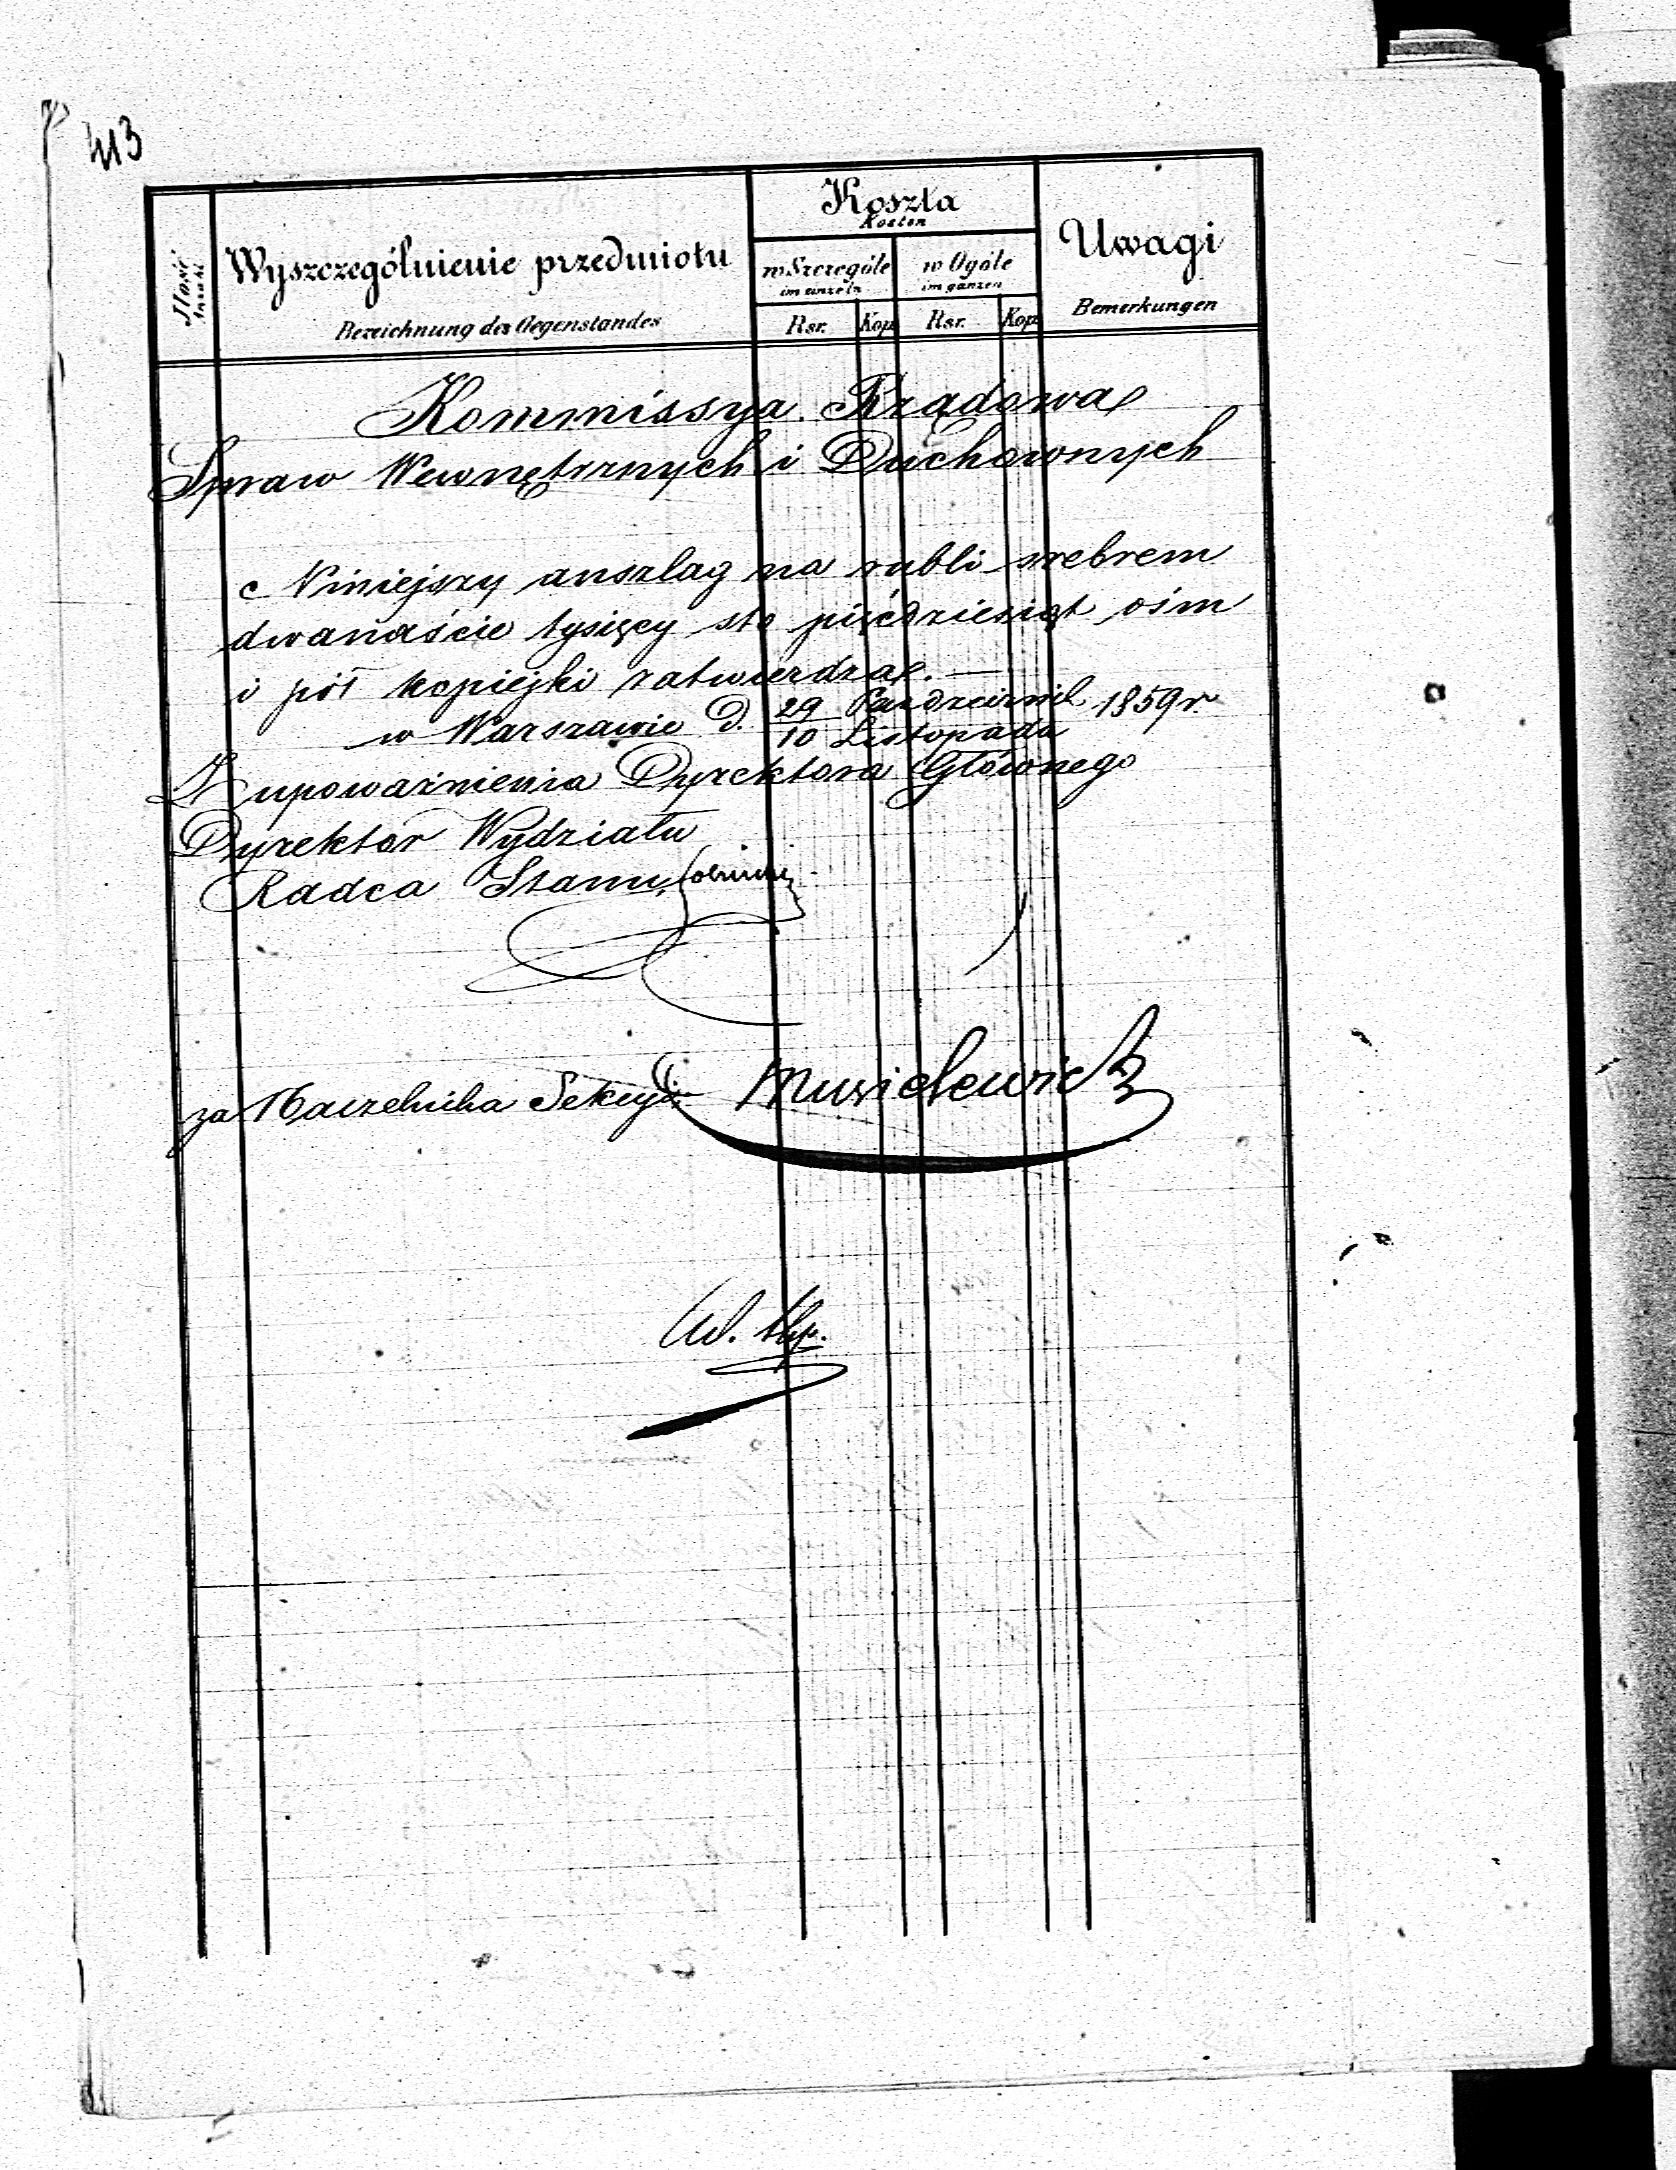 413
Ilość
Anzahl
Wyszczególnienie przedmiotu
Bezeichnung des Gegenstandes
Koszta
Kosten
w Szczególe
im einzeln
w Ogóle
im ganzen
Rsr. Kop. Rsr. Kop.
Uwagi
Bemerkungen
Kommissya Rządowa
Spraw Wewnętrznych i Duchownych
Niniejszy anszlag na rubli srebrem
dwanaście tysięcy sto pięćdziesiąt ośm
i pół kopiejki zatwierdza. —
w Warszawie d. 29/10 Październik/Listopada 1859 r.
Z upoważnienia Dyrektora Głównego
Dyrektor Wydziału
Radca Stanu
za Naczelnika Sekcyi